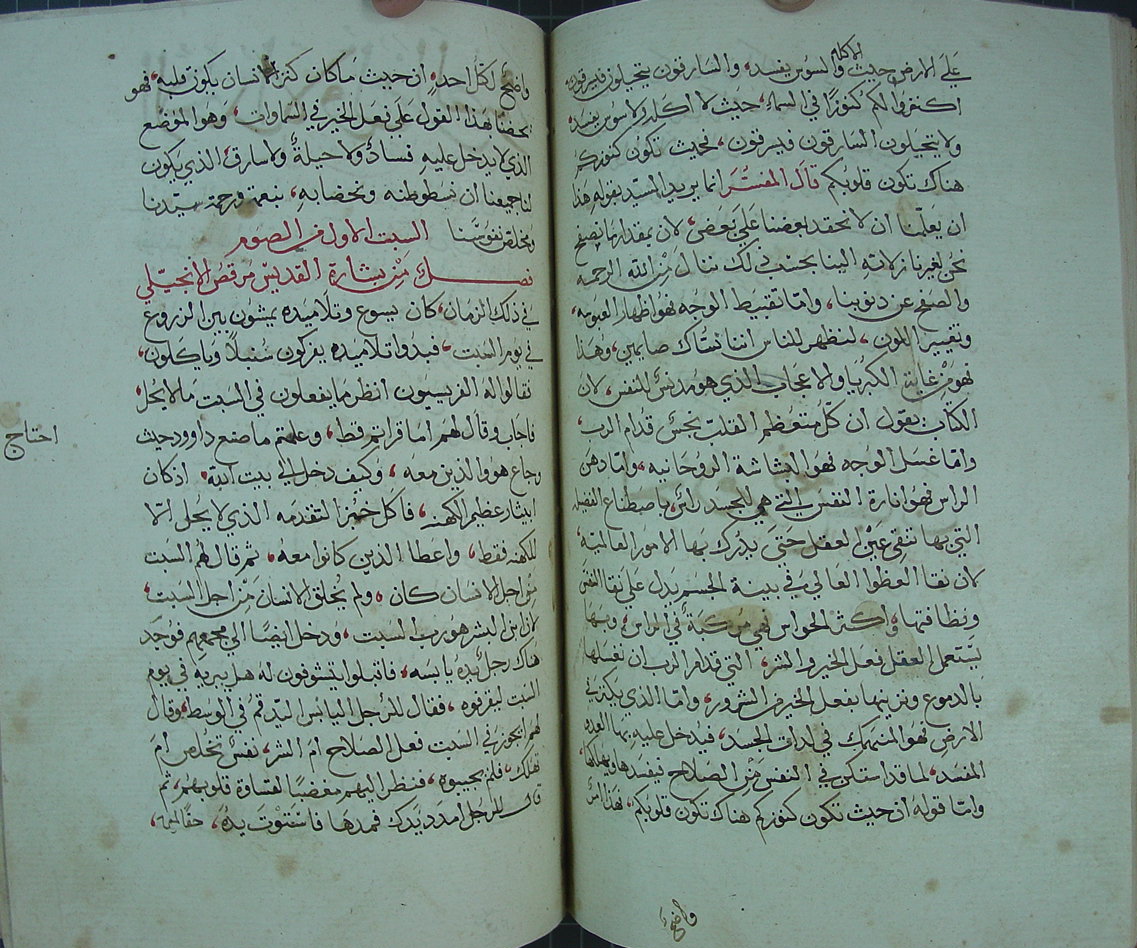 الاكله
على الارض حيث والسوس يفسد، والسارقون يتحيلون فيسرقون
اكنزوا لكم كنوزًا في السماء، حيث لا اكله ولا سوس يفسد،
ولا يتحيلون السارقون فيسرقون، فحيث تكون كنوزكم
هناك تكون قلوبكم قال المفسّر انما يريد السيّد بقوله هذا
ان يعلّمنا ان لا يحقد بعضنا على بعض، لان بمقدار ما نصفح
نحن لغيرنا زلاته الينا بحسب ذلك ننال من الله الرحمه
والصفح عن ذنوبنا، وامّا تقبيط الوجه فهو اظهار العبوسه،
وتغيير اللون، لنظهر للناس اننا نسّاك صايمين، وهذا
فهو من غاية الكبريا والاعجاب الذي هو مدنّس للنفس، لان
الكتاب يقول ان كلّ متعظم القلب نجس قدام الرب،
وامّا غسل الوجه فهو البشاشة الروحانيه، وامّا دهن
الراس فهو انارة النفس التي هي للجسد راس، باصطناع الفضله
التي بها تنقى عين العقل حتى يدرك بها الامور العالية،
لان نقا العظوا العالي في بنية الجسم يدل على نقا النفس
ونظافتها، واكثر الحواس فهي مركبة في الراس، وبها
يستعمل العقل فعل الخير والشر، التي قدام الرب ان نغسلها
بالدموع ونزينها بفعل الخير من الشرور، وامّا الذي يكنز في
الارض فهو المنهمك في لذات الجسد، فيدخل عليه بها العدو
المفسد، لما قد استكن في النفس من الصلاح فيفسدها ويهلكها
وامّا قوله ان حيث تكون كنوزكم هناك تكون قلوبكم، فهذا امر
واضح
واضح لكل احد، ان حيث ما كان كنز الانسان يكون قلبه، فهو
يحضنا بهذا القول على فعل الخير في السماوات، وهو الموضع
الذي لا يدخل عليه فساد ولا حيلة ولا سارق، الذي يكون
لنا جميعنا ان نستوطنه ونحضا به، بنعمة ورحمة سيّدنا
ومخلص نفوسنا السبت الاول من الصوم
فصل من بشارة القديس مرقص الانجيلي
في ذلك الزمان، كان يسوع وتلاميذه يمشون بين الزروع
في يوم السبت، فبدوا تلاميذه يفركون سنبلاً وياكلون،
فقالوا له الفريسيون انظر ما يفعلون في السبت ما لا يحل،
فاجاب وقال لهم اما قراتم قط، وعلمتم ما صنع داوود حيث
احتاج
وجاع هو والذين معه، وكيف دخل الى بيت الله، اذ كان
ابيثار عظيم الكهنه، فاكل خبز التقدمه الذي لا يحل الا
للكهنه فقط، واعطا الذين كانوا معه، ثم قال لهم السبت
من اجل الانسان كان، ولم يُخلق الانسان من اجل السبت،
لان ابن البشر هو رب السبت، ودخل ايضًا الى مجمعهم فوجد
هناك رجل يده يابسه، فاقبلوا يتشوفون له هل يبريه في يوم
السبت ليقرفوه، فقال للرجل اليابس اليد قم في الوسط، وقال
لهم ايجوز في السبت فعل الصلاح ام الشر، نفسٌ تخلص ام
تهلك، فلم يجيبوه، فنظر اليهم مغضبًا لقساوة قلوبهم، ثم
قال للرجل امدد يدك فمدها فاستوت يده،